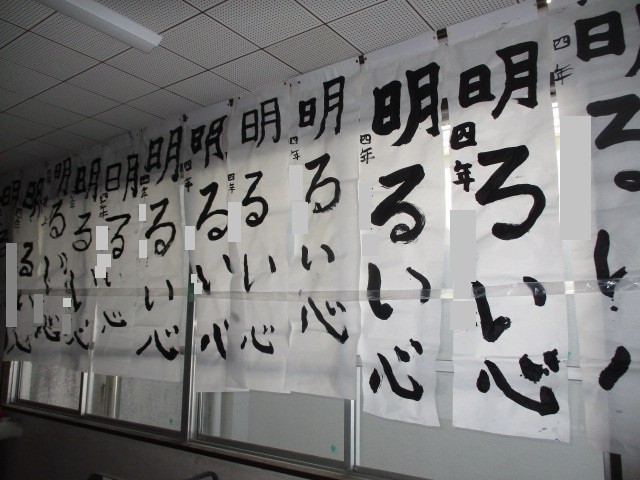 明るい心
四年
明ろい心
四年
明るい心
四年
明るい心
四年
明るい心
四年
明るい心
四年
明るい心
四年
明るい心
四年
明るい心
明るい心
明るい心